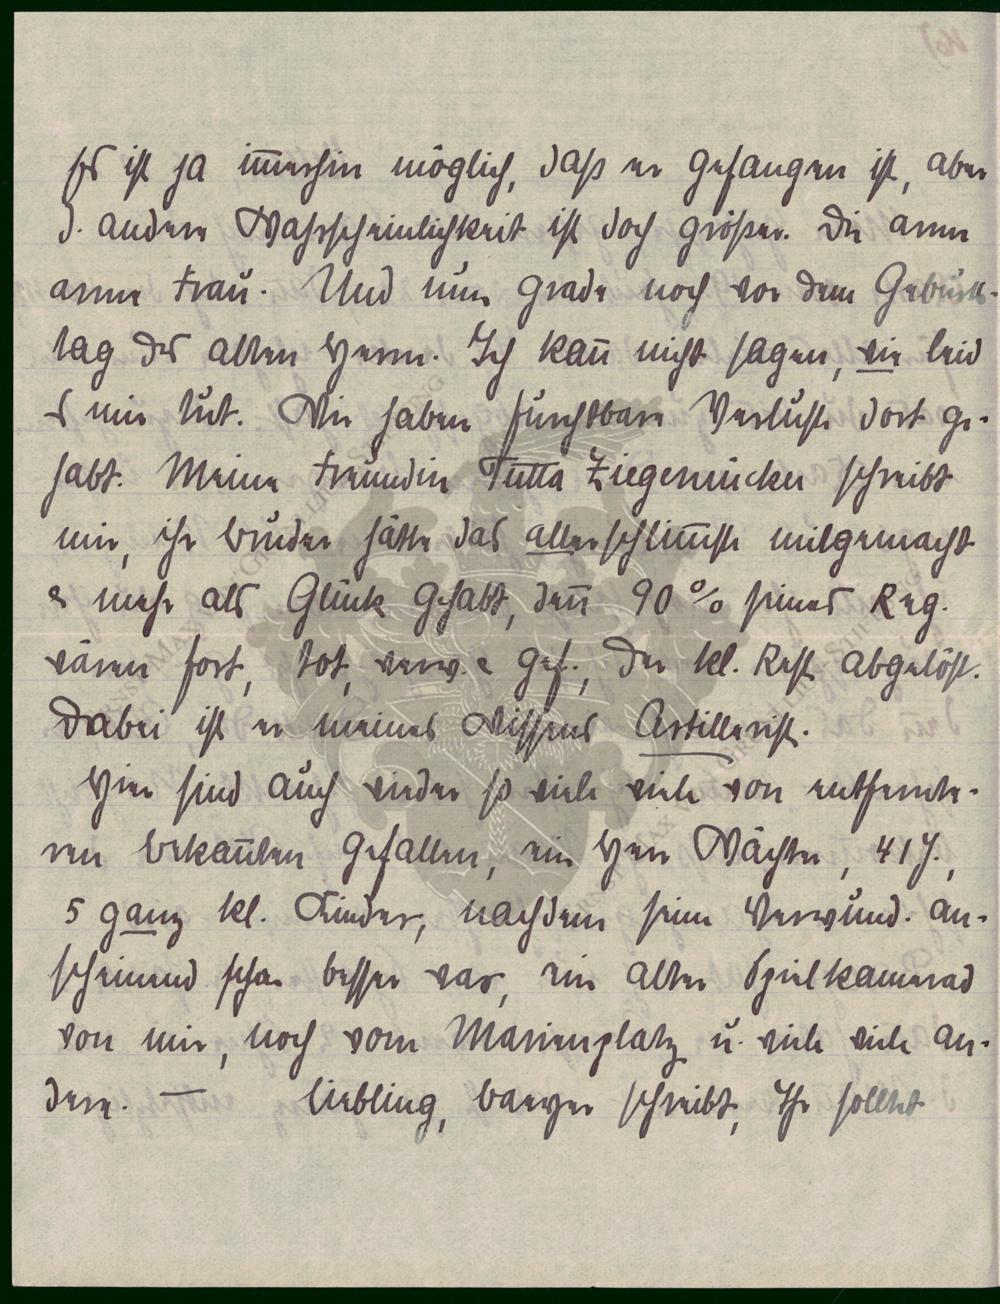 Es ist ja im̅erhin möglich, daß er gefangen ist, aber
d. andere Wahrscheinlichkeit ist doch größer. Die arme
arme Frau. Und nun grade noch vor dem Geburts-
tag des alten Herrn. Ich kan̅ nicht sagen, wie leid
es mir tut. Wir haben furchtbare Verluste dort ge-
habt. Meine Freundin Tutta Ziegenrücker schreibt
mir, ihr Bruder hätte das allerschlim̅ste mitgemacht
& mehr als Glück gehabt, den̅ 90 % seines Reg.
wären fort, tot, verw. & gef., der kl. Rest abgelöst.
Dabei ist er meines Wissens Artillerist.
Hier sind auch wieder so viele viele von entfernte-
ren Bekan̅ten gefallen, ein Herr Wächter, 41 J.,
5 ganz kl. Kinder, nachdem seine Verwund. an-
scheinend schon besser war, ein alter Spielkamerad
von mir, noch vom Marienplatz u. viele viele an-
dere. — Liebling, Baeyer schreibt, Ihr solltet